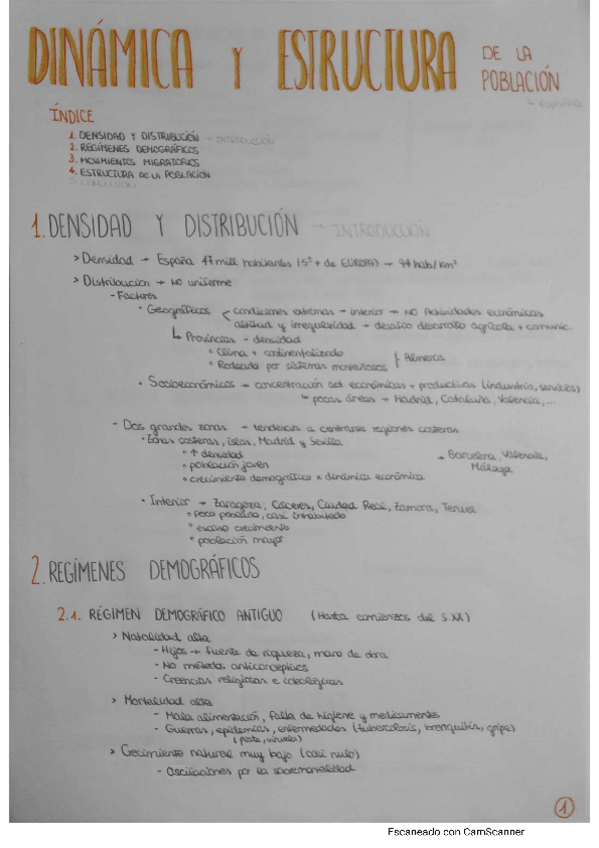 DINÁMICA Y ESTRUCTURA DE LA POBLACIÓN
→ española
ÍNDICE
1. DENSIDAD Y DISTRIBUCIÓN → INTRODUCCIÓN
2. REGÍMENES DEMOGRÁFICOS
3. MOVIMIENTOS MIGRATORIOS
4. ESTRUCTURA DE LA POBLACIÓN
5. CONCLUSIÓN
1. DENSIDAD Y DISTRIBUCIÓN → INTRODUCCIÓN
> Densidad → España 47 mill habitantes (5º + de EUROPA) → 94 habs/km²
> Distribución → NO uniforme
- Factores
• Geográficos condiciones extremas → interior → NO Actividades económicas
altitud y irregularidad → desafío desarrollo agrícola + comunic.
↳ Provincias - densidad
• Clima + continentalizado
• Rodeada por sistemas montañosos } Almería
• Socioeconómicos → concentración act. económicas + productivas (industria, servicios)
↳ pocas áreas → Madrid, Cataluña, Valencia,...
- Dos grandes zonas → tendencia a centrarse regiones costeras
• Zonas costeras, islas, Madrid y Sevilla
• ↑ densidad → Barcelona, Valencia,
• población joven Málaga
• crecimiento demográfico x dinámica económica
• Interior → Zaragoza, Cáceres, Ciudad Real, Zamora, Teruel
• Poco poblado, casi inhabitado
• escaso crecimiento
• población mayor
2. REGÍMENES DEMOGRÁFICOS
2.1. RÉGIMEN DEMOGRÁFICO ANTIGUO (Hasta comienzos del S.XX)
> Natalidad alta
- Hijos → fuente de riqueza, mano de obra
- No métodos anticonceptivos
- Creencias religiosas e ideológicas
> Mortalidad alta
- Mala alimentación, falta de higiene y medicamentos
- Guerras, epidemias, enfermedades (tuberculosis, bronquitis, gripe)
(peste, viruela)
> Crecimiento natural muy bajo (casi nulo)
- Oscilaciones por la sobremortalidad
1
Escaneado con CamScanner